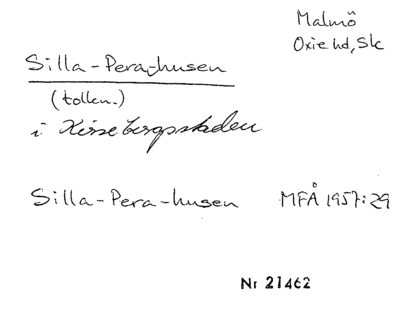 Malmö
Oxie hd, Sk
Silla-Pera-husen
(tollen.)
i Kirsebergsstaden
Silla-Pera-husen MFÅ 1957:29
Nr 21462